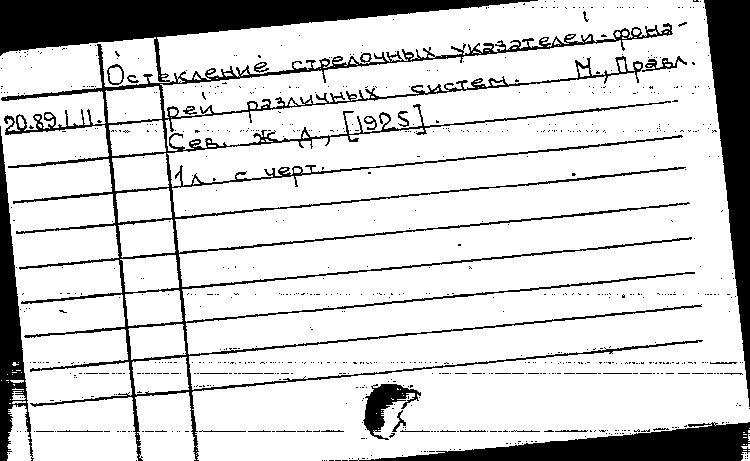 Остекление стрелочных указателей-фона-
20.89.1.11. рей различных систем. М., Правл.
Сев. ж. д, [1925].
1 л. с черт.